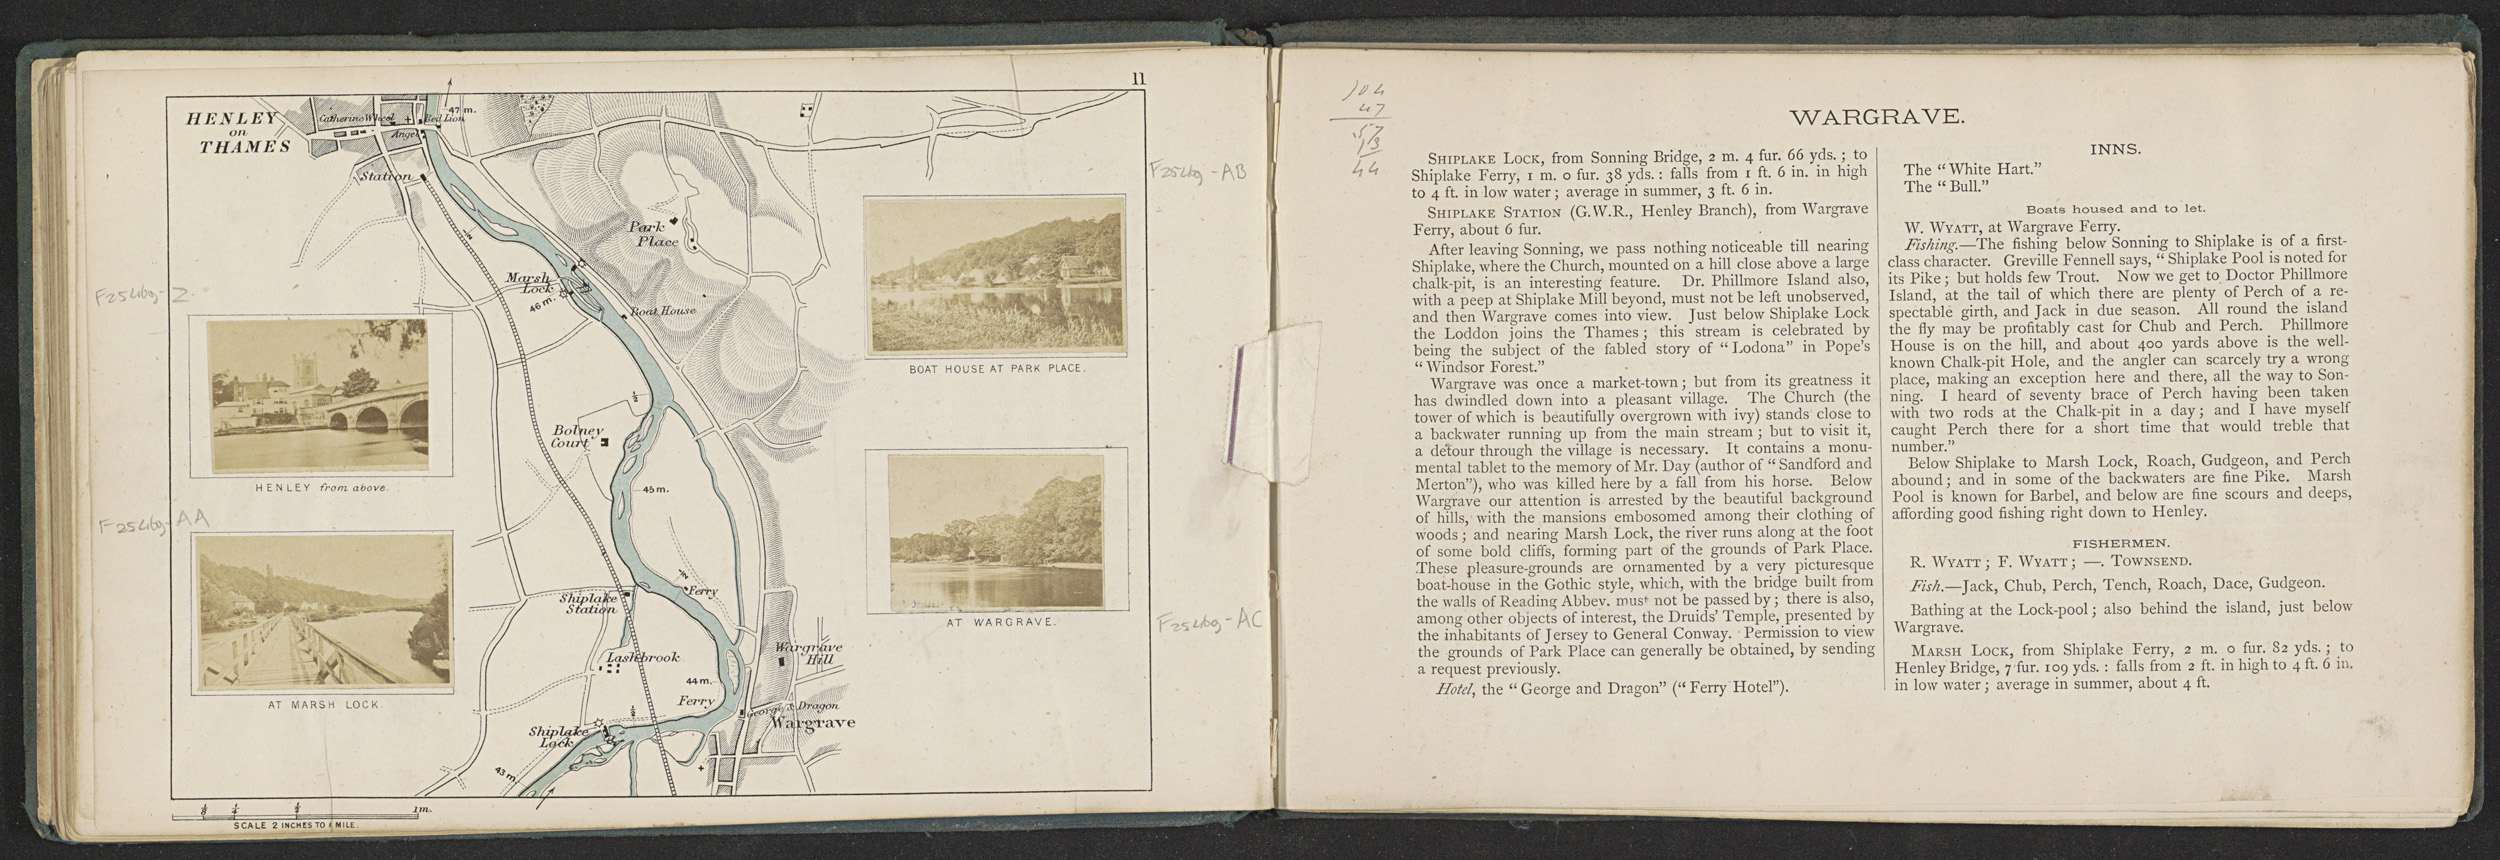 11
HENLEY
on
THAMES
Catherine Wheel
Red Lion
Angel
47 m.
Station
Park
Place
Marsh
Lock
46 m.
Boat House
½
Bolney
Court
45 m.
Ferry
Shiplake
Station
Lashbrook
Wargrave
Hill
44 m.
Ferry
½
George & Dragon
Wargrave
Shiplake
Lock
43 m.
F25469-Z
HENLEY from above.
F25469-AA
AT MARSH LOCK.
F25469-AB
BOAT HOUSE AT PARK PLACE.
AT WARGRAVE.
F25469-AC
⅛ ¼ ½ 1 m.
SCALE 2 INCHES TO 1 MILE.
104
47
57
13
44
WARGRAVE.
SHIPLAKE LOCK, from Sonning Bridge, 2 m. 4 fur. 66 yds.; to
Shiplake Ferry, 1 m. 0 fur. 38 yds.: falls from 1 ft. 6 in. in high
to 4 ft. in low water; average in summer, 3 ft. 6 in.
SHIPLAKE STATION (G.W.R., Henley Branch), from Wargrave
Ferry, about 6 fur.
After leaving Sonning, we pass nothing noticeable till nearing
Shiplake, where the Church, mounted on a hill close above a large
chalk-pit, is an interesting feature. Dr. Phillmore Island also,
with a peep at Shiplake Mill beyond, must not be left unobserved,
and then Wargrave comes into view. Just below Shiplake Lock
the Loddon joins the Thames; this stream is celebrated by
being the subject of the fabled story of "Lodona" in Pope's
"Windsor Forest."
Wargrave was once a market-town; but from its greatness it
has dwindled down into a pleasant village. The Church (the
tower of which is beautifully overgrown with ivy) stands close to
a backwater running up from the main stream; but to visit it,
a détour through the village is necessary. It contains a monu-
mental tablet to the memory of Mr. Day (author of "Sandford and
Merton"), who was killed here by a fall from his horse. Below
Wargrave our attention is arrested by the beautiful background
of hills, with the mansions embosomed among their clothing of
woods; and nearing Marsh Lock, the river runs along at the foot
of some bold cliffs, forming part of the grounds of Park Place.
These pleasure-grounds are ornamented by a very picturesque
boat-house in the Gothic style, which, with the bridge built from
the walls of Reading Abbey, must not be passed by; there is also,
among other objects of interest, the Druids' Temple, presented by
the inhabitants of Jersey to General Conway. Permission to view
the grounds of Park Place can generally be obtained, by sending
a request previously.
Hotel, the "George and Dragon" ("Ferry Hotel").
INNS.
The "White Hart."
The "Bull."
Boats housed and to let.
W. WYATT, at Wargrave Ferry.
Fishing.—The fishing below Sonning to Shiplake is of a first-
class character. Greville Fennell says, "Shiplake Pool is noted for
its Pike; but holds few Trout. Now we get to Doctor Phillmore
Island, at the tail of which there are plenty of Perch of a re-
spectable girth, and Jack in due season. All round the island
the fly may be profitably cast for Chub and Perch. Phillmore
House is on the hill, and about 400 yards above is the well-
known Chalk-pit Hole, and the angler can scarcely try a wrong
place, making an exception here and there, all the way to Son-
ning. I heard of seventy brace of Perch having been taken
with two rods at the Chalk-pit in a day; and I have myself
caught Perch there for a short time that would treble that
number."
Below Shiplake to Marsh Lock, Roach, Gudgeon, and Perch
abound; and in some of the backwaters are fine Pike. Marsh
Pool is known for Barbel, and below are fine scours and deeps,
affording good fishing right down to Henley.
FISHERMEN.
R. WYATT; F. WYATT; —. TOWNSEND.
Fish.—Jack, Chub, Perch, Tench, Roach, Dace, Gudgeon.
Bathing at the Lock-pool; also behind the island, just below
Wargrave.
MARSH LOCK, from Shiplake Ferry, 2 m. 0 fur. 82 yds.; to
Henley Bridge, 7 fur. 109 yds.: falls from 2 ft. in high to 4 ft. 6 in.
in low water; average in summer, about 4 ft.